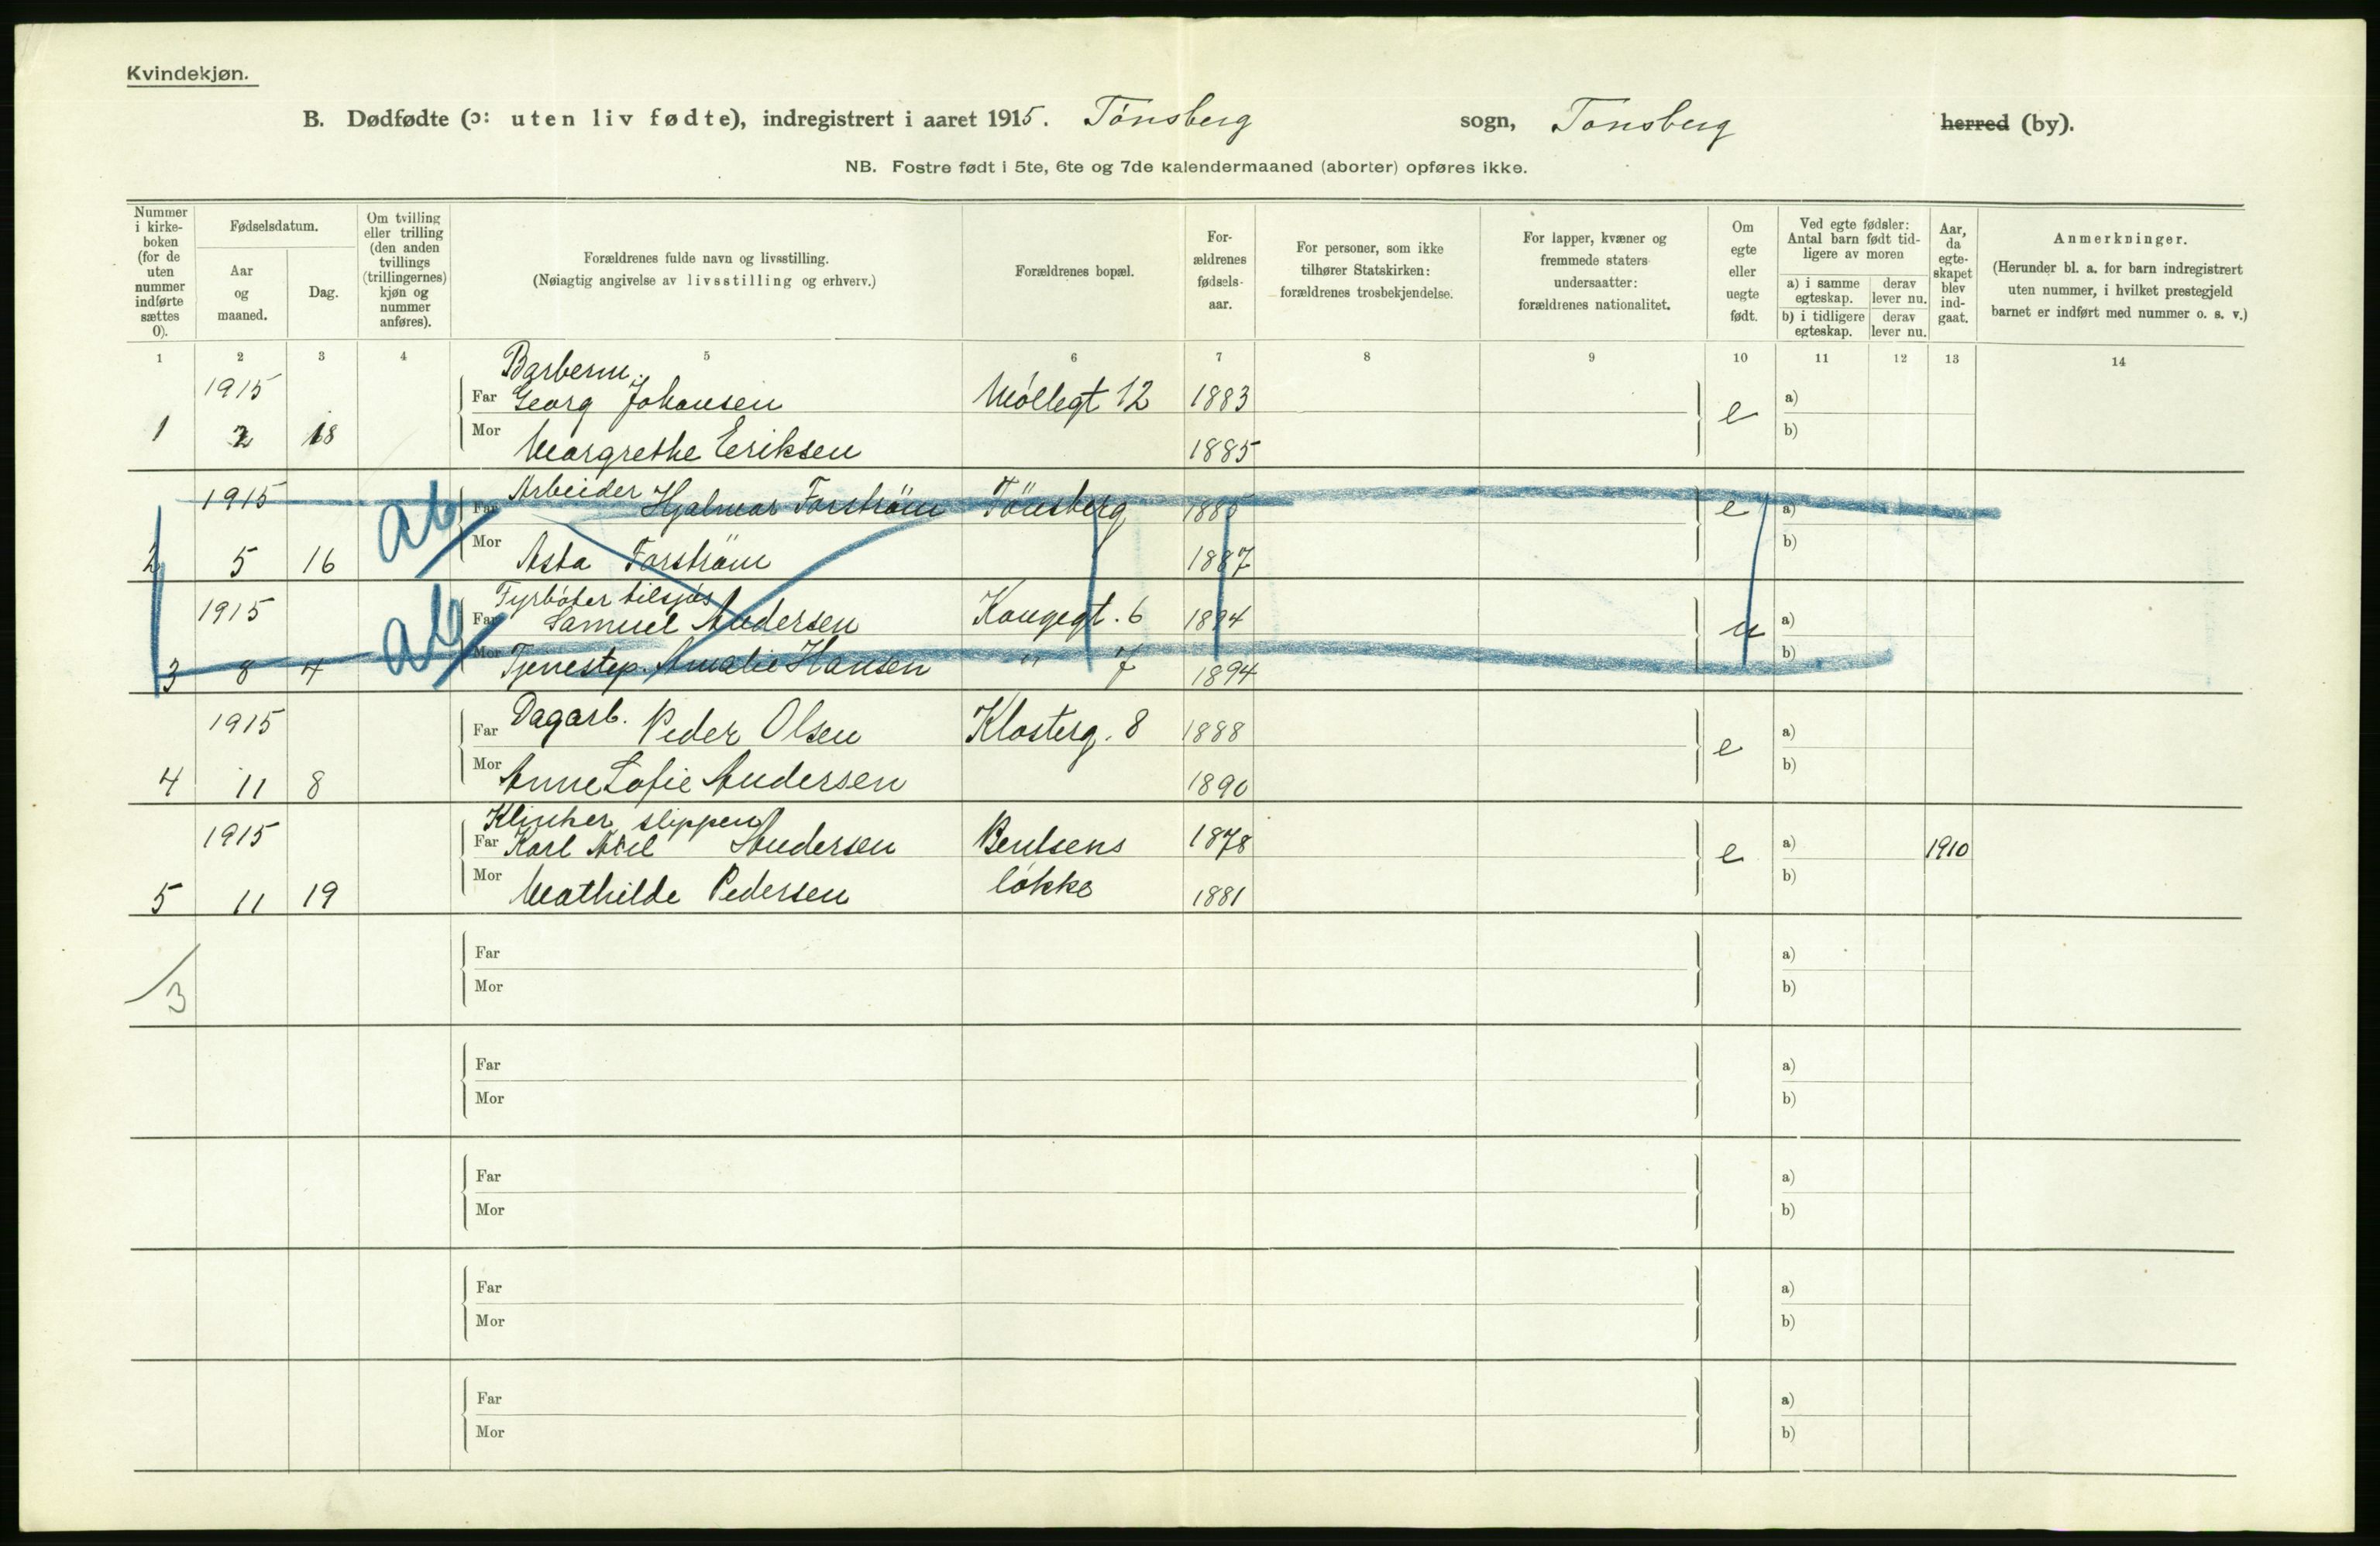 Kvindekjøn.
B. Dødfødte (ɔ: uten liv fødte), indregistrert i aaret 1915. Tønsberg sogn, Tønsberg herred (by).
NB. Fostre født i 5te, 6te og 7de kalendermaaned (aborter) opføres ikke.
Nummer i kirke-boken (for de uten nummer indførte sættes 0).
Fødselsdatum.
Aar og maaned.
Dag.
Om tvilling eller trilling (den anden tvillings (trillingernes) kjøn og nummer anføres).
Forældrenes fulde navn og livsstilling.
(Nøiagtig angivelse av livsstilling og erhverv.)
Forældrenes bopæl.
For-ældrenes fødsels-aar.
For personer, som ikke tilhører Statskirken: forældrenes trosbekjendelse.
For lapper, kvæner og fremmede staters undersaatter: forældrenes nationalitet.
Om egte eller uegte født.
Ved egte fødsler: Antal barn født tid-ligere av moren
a) i samme egteskap.
derav lever nu.
b) i tidligere egteskap.
derav lever nu.
Aar, da egte-skapet blev ind-gaat.
Anmerkninger.
(Herunder bl. a. for barn indregistrert uten nummer, i hvilket prestegjeld barnet er indført med nummer o. s. v.)
1 2 3 4 5 6 7 8 9 10 11 12 13 14
Barberm.
1915 Far Georg Johansen Møllegt 12 1883 e a)
1 2 18 Mor Margrethe Eriksen 1885 b)
Arbeider
1915 ab Far Hjalmar Forström Tönsberg 1885 e a)
2 5 16 Mor Asta Forström 1887 b)
Fyrbøter tilsjøs
1915 ab Far Samuel Andersen Kongegt. 6 1894 u a)
3 8 4 Mor Tjenestep. Amalie Hansen " 7 1894 b)
1915 Far Dagarb. Peder Olsen Klosterg. 8 1888 e a)
4 11 8 Mor Anne Sofie Andersen 1890 b)
Klinker slippen
1915 Far Karl Axel Andersen Bentsens 1878 e a) 1910
5 11 19 Mor Mathilde Pedersen løkke 1881 b)
Far a)
3 Mor b)
Far a)
Mor b)
Far a)
Mor b)
Far a)
Mor b)
Far a)
Mor b)